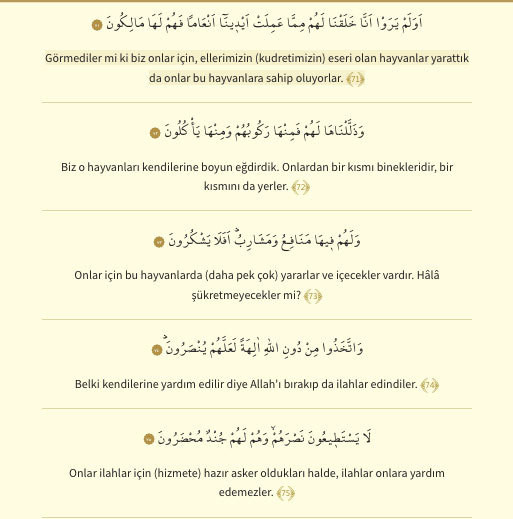 اَوَلَمْ يَرَوْا اَنَّا خَلَقْنَا لَهُمْ مِمَّا عَمِلَتْ اَيْد۪ينَٓا اَنْعَاماً فَهُمْ لَهَا مَالِكُونَ ﴿٧١﴾
Görmediler mi ki biz onlar için, ellerimizin (kudretimizin) eseri olan hayvanlar yarattık
da onlar bu hayvanlara sahip oluyorlar. ﴾71﴿
وَذَلَّلْنَاهَا لَهُمْ فَمِنْهَا رَكُوبُهُمْ وَمِنْهَا يَأْكُلُونَ ﴿٧٢﴾
Biz o hayvanları kendilerine boyun eğdirdik. Onlardan bir kısmı binekleridir, bir
kısmını da yerler. ﴾72﴿
وَلَهُمْ ف۪يهَا مَنَافِعُ وَمَشَارِبُۜ اَفَلَا يَشْكُرُونَ ﴿٧٣﴾
Onlar için bu hayvanlarda (daha pek çok) yararlar ve içecekler vardır. Hâlâ
şükretmeyecekler mi? ﴾73﴿
وَاتَّخَذُوا مِنْ دُونِ اللّٰهِ اٰلِهَةً لَعَلَّهُمْ يُنْصَرُونَۜ ﴿٧٤﴾
Belki kendilerine yardım edilir diye Allah'ı bırakıp da ilahlar edindiler. ﴾74﴿
لَا يَسْتَط۪يعُونَ نَصْرَهُمْۙ وَهُمْ لَهُمْ جُنْدٌ مُحْضَرُونَ ﴿٧٥﴾
Onlar ilahlar için (hizmete) hazır asker oldukları halde, ilahlar onlara yardım
edemezler. ﴾75﴿